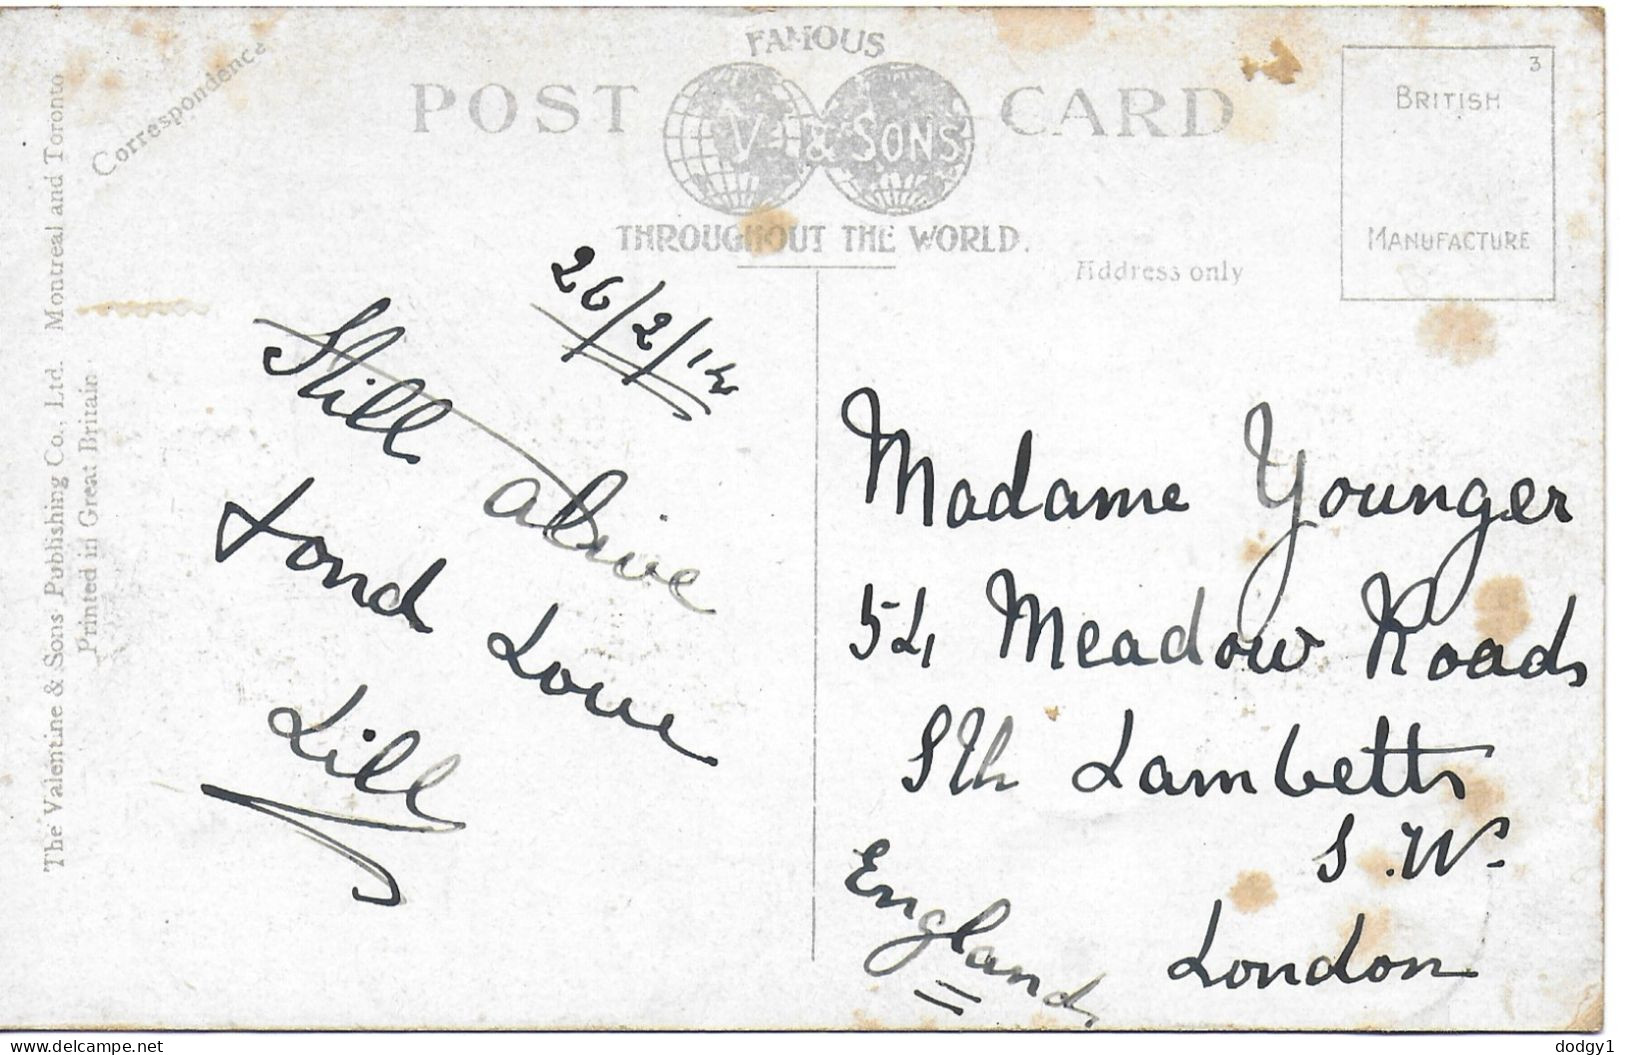 FAMOUS
POST CARD
V & SONS
THROUGHOUT THE WORLD.
Correspondence
Address only
3
BRITISH
MANUFACTURE
The Valentine & Sons Publishing Co., Ltd. Montreal and Toronto
Printed in Great Britain
26/2/14
Still alive
Fond Love
Lill
Madame Younger
54 Meadow Road
Sth Lambeth
S.W.
London
England
delcampe.net
dodgy1